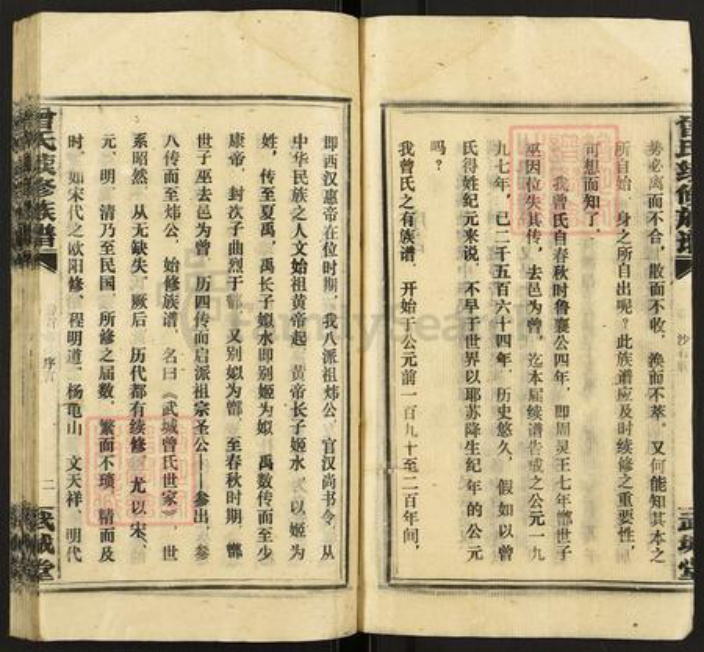 势必离而不合，散而不收，涣而不萃。又何能知其本之
所自始，身之所自出呢？此族谱应及时续修之重要性，
可想而知了。
我曾氏自春秋时鲁襄公四年，即周灵王七年鄫世子
巫因位失其传，去邑为曾，迄本届续谱告成之公元一九
九七年，已二千五百六十四年，历史悠久，假如以曾
氏得姓纪元来说，不早于世界以耶苏降生纪年的公元
吗？
我曾氏之有族谱，开始于公元前一百九十至二百年间，
曾氏续修族谱
武城堂
即西汉惠帝在位时期，我八派祖炜公，官汉尚书令，从
中华民族之人文始祖黄帝起，黄帝长子姬水，以姬为
姓，传至夏禹，禹长子姒水即别姬为姒，禹数传而至少
康帝，封次子曲烈于鄫，又别姒为鄫，至春秋时期，鄫
世子巫去邑为曾，历四传而启派祖宗圣公——参出，参
八传而至炜公，始修族谱，名曰《武城曾氏世家》，世
系昭然，从无缺失，厥后，历代都有续修，尤以宋、
元、明、清乃至民国，所修之届数，繁而不琐，精而及
时，如宋代之欧阳修、程明道、杨龟山、文天祥，明代
曾氏续修族谱
序言
二
武城堂
FamilySearch